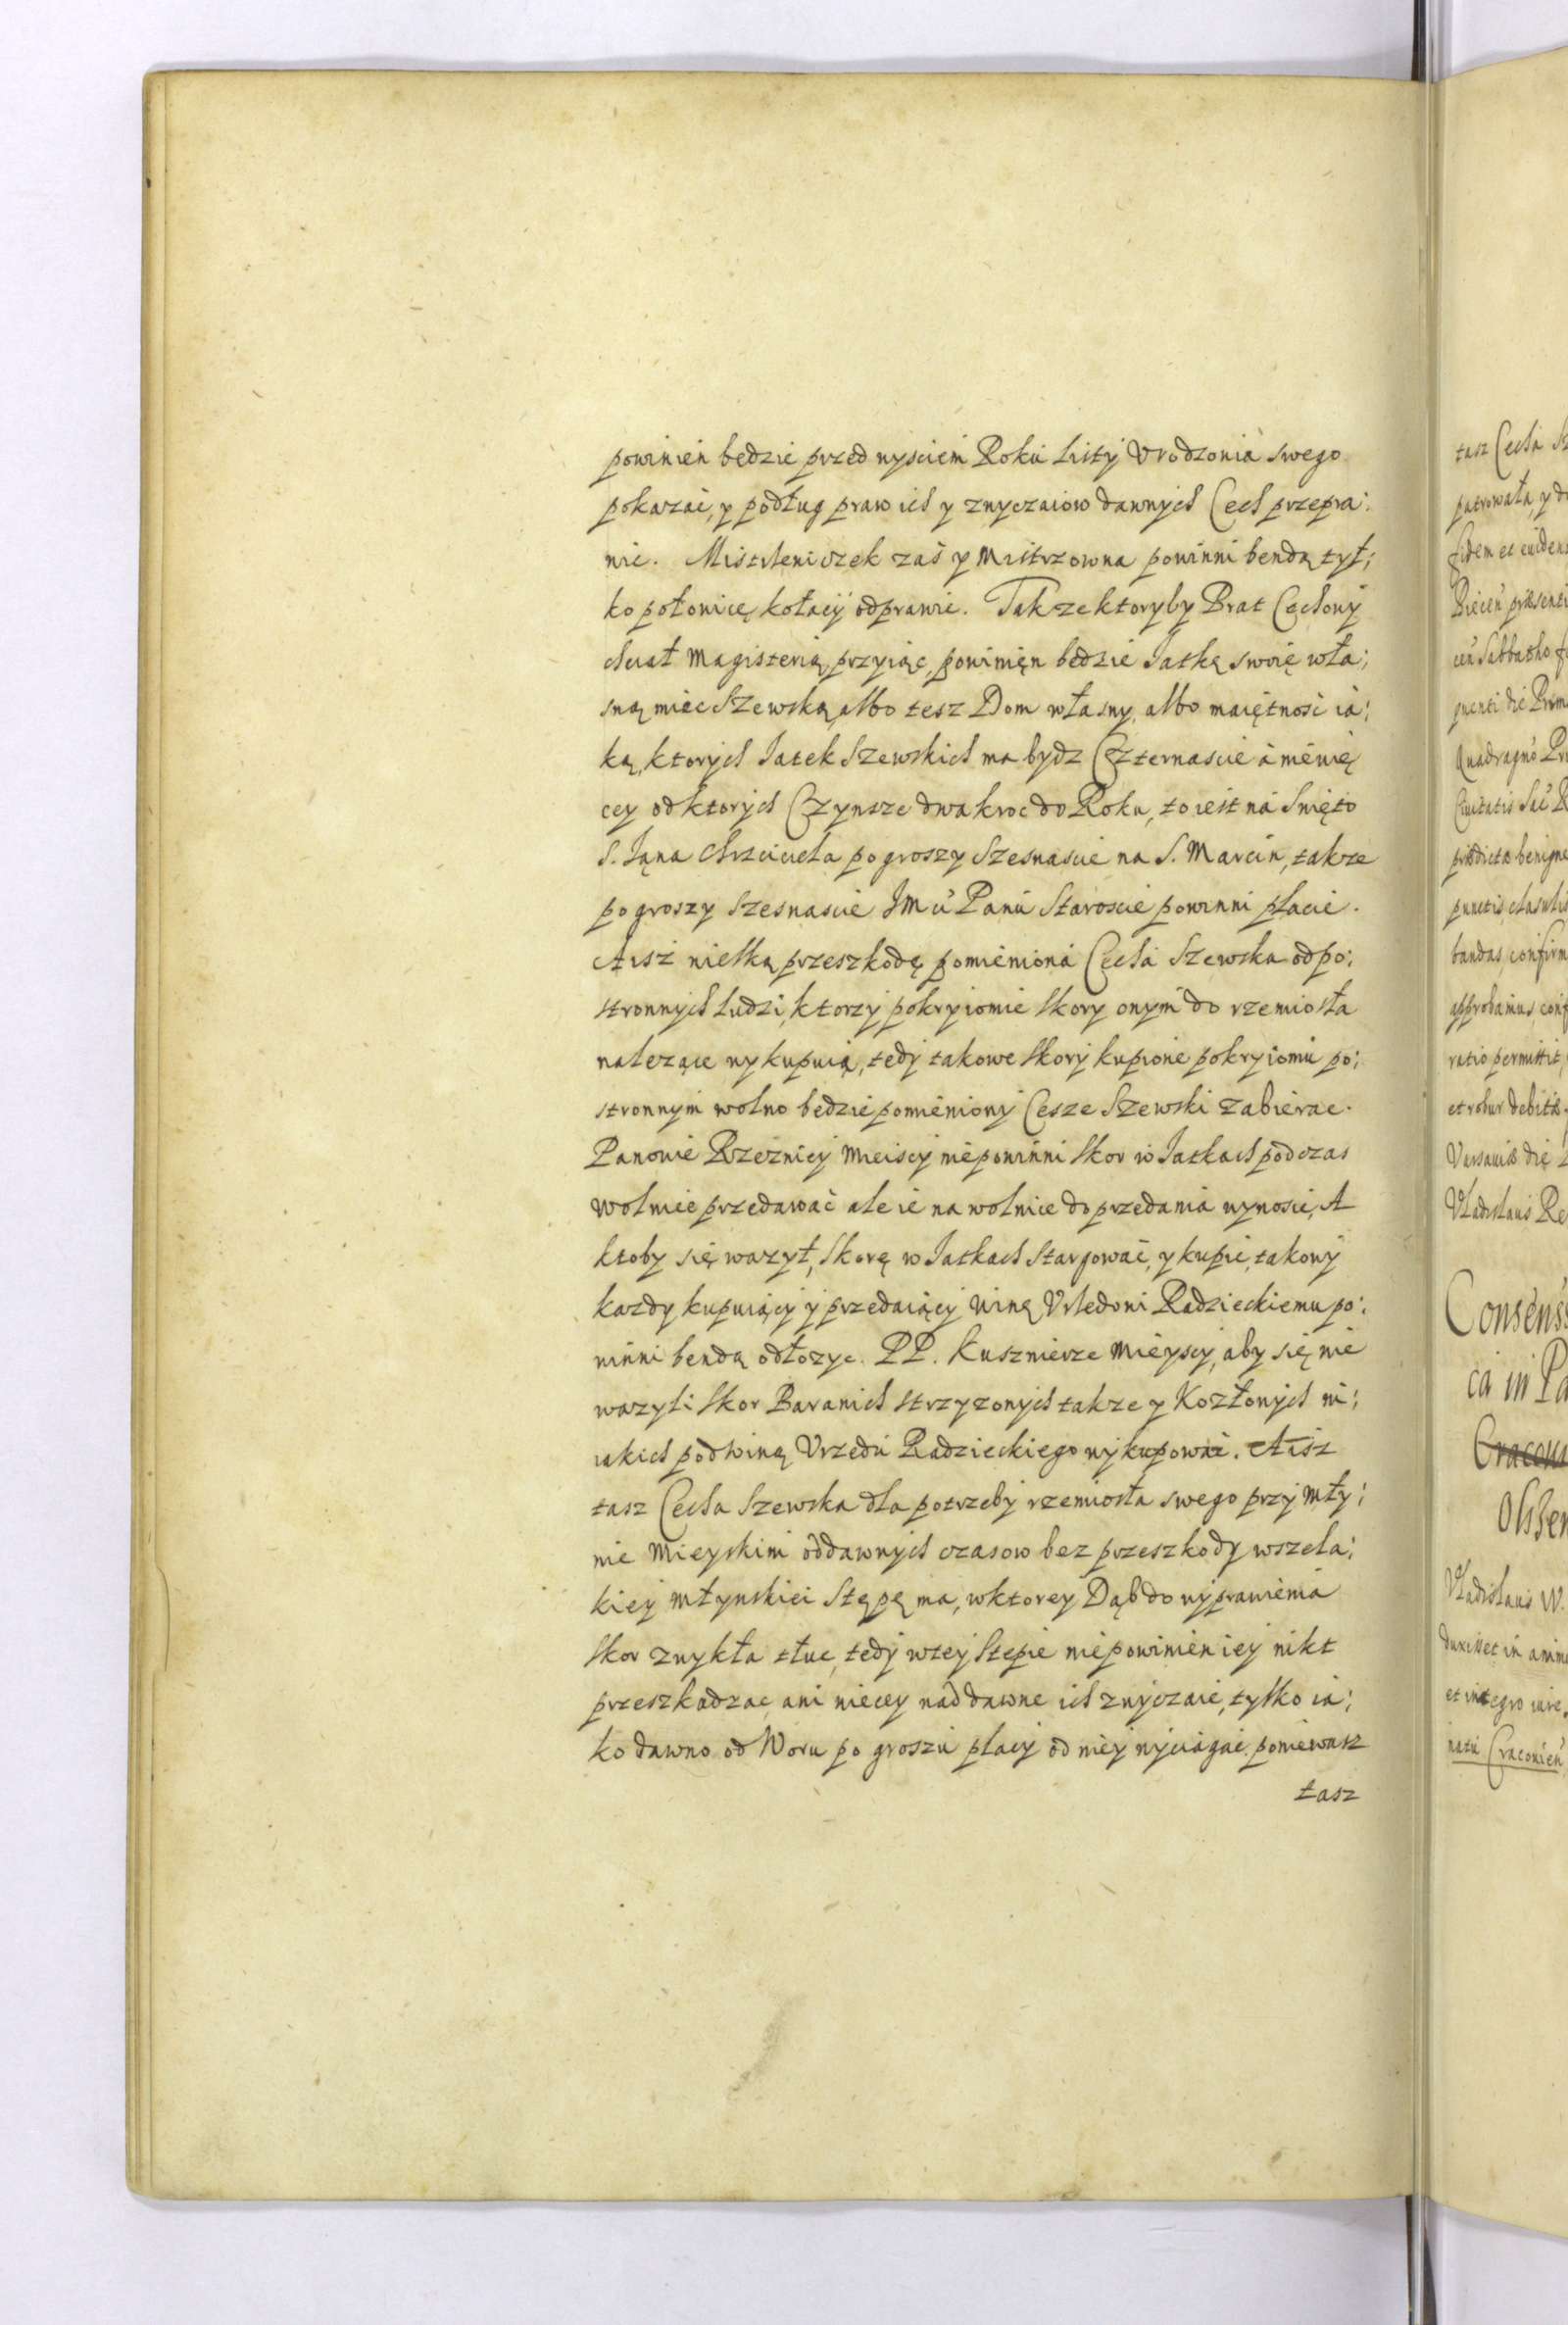 powinień będzie przed wysciem Roku Listy Vrodzonia swego
pokazać, y podług praw ich y zwyczaiow dawnych Cech przepra:
wic. Mistrleniczek zaś y Mistrzowna powinni bendą tyl:
ko połowicę kołacy odprawic. Takze ktoryby Brat Cechowy
chciał Magisterią przyiąc, powinięn będzie Jatkę swoię wła:
sną miec Szewską albo tesz Dom własny, albo maiętnosć ia:
ką, ktorych Jatek Szewskich ma bydz Czternascie à mènię
cey od ktorych Czynsze dwakroc do Roku, to iest na Swięto
S. Jąna Chrzciciela po groszy Szesnascie na S. Marcin, takze
po groszy Szesnascie JMci Panu Staroscie powinni płacic.
Aisz nielką przeszkodę pomieniona Cecha Szewska od po:
stronnych ludzi, ktorzy pokryiomie skory onym do rzemiosła
nalezące wykupuią, tedy takowe skory kupione pokryiomu po:
stronnym wolno będzie pomieniony Cesze Szewski zabierac.
Panowie Rzeznicy Mieiscy nie powinni skor w Jatkach podczas
wolnice przedawać ale ie na wolnice do przedania wynosic, A
ktoby się wazył, skorę w Jatkach stargować, y kupic, takowy
kazdy kupuiący y przedaiący winę Vrzedowi Radzieckiemu po:
winni bendą odłozyc. PP. Kusznierze Mieyscy, aby się nie
wazyli skor Baranich strzyzonych takze y Kozłowych ni:
iakich pod winą Vrzedu Radzieckiego wykupować. Aisz
tasz Cecha Szewska dla potrzeby rzemiosła swego przy Mły:
nie Mieyskim od dawnych czasow bez przeszkody wszela:
kiey Młynskiei Stępę ma, w ktorey Dąb do wyprawienia
skor zwykła tłuc, tedy w tey Stepie nie powinien iey nikt
przeszkadzac, ani wiecey nad dawne ich zwyczaie, tylko ia:
ko dawno od Woru po groszu płacy od niey wyciągać. poniewasz
tasz
tasz Cecha
patrowała, y
fidem et euidens
cen Sabbatho
quenti die
Consens
ca in
Cracou